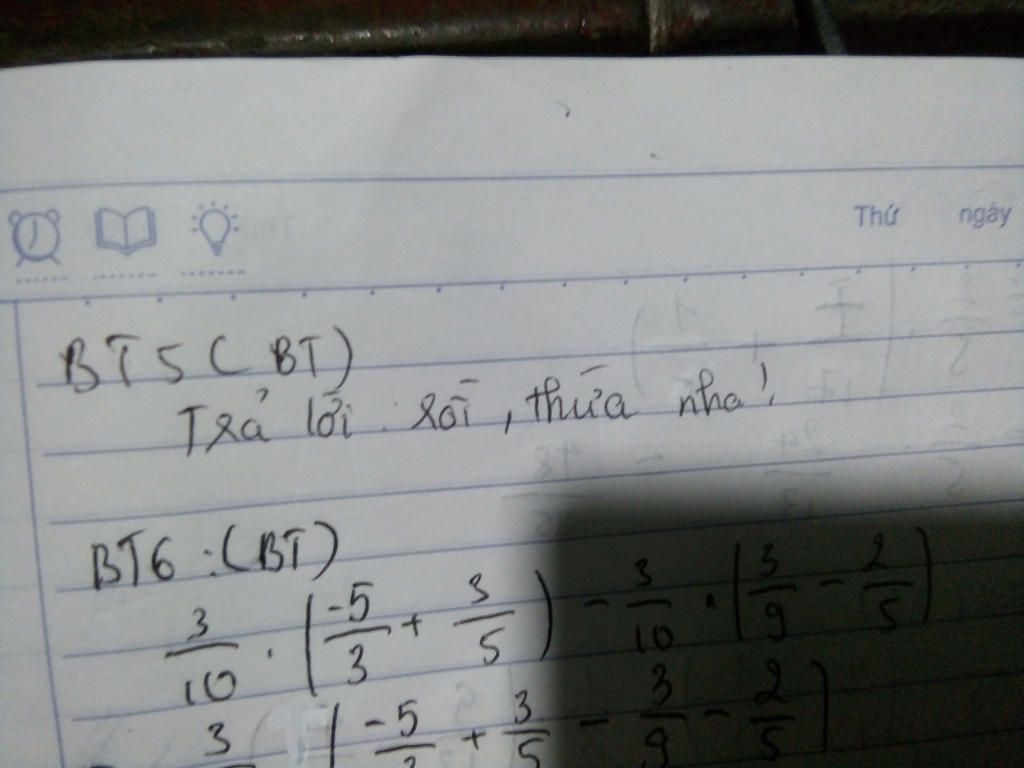 Thứ ngày
BT5 (BT)
Trả lời rồi, thừa nha!
BT6 : (BT)
3/10 . (-5/3 + 3/5) - 3/10 . (3/9 - 2/5)
3 (-5/3 + 3/5 - 3/9 - 2/5)